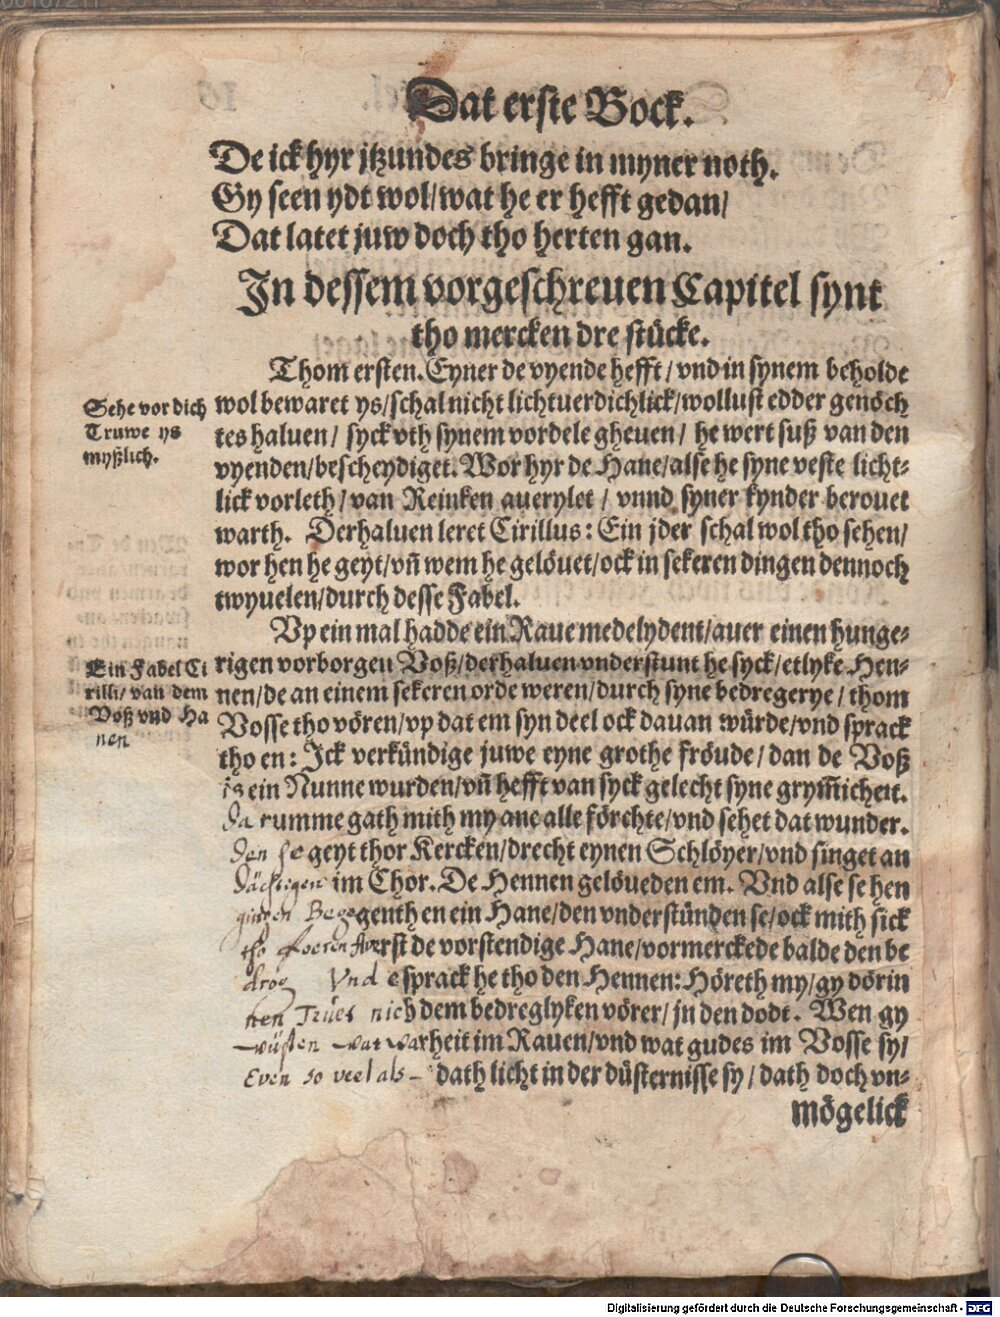 Dat erste Bock.
De ick hyr jtzundes bringe in myner noth.
Gy seen ydt wol/wat he er hefft gedan/
Dat latet juw doch tho herten gan.
In dessem vorgeschreuen Capitel synt
tho mercken dre stücke.
Thom ersten. Eyner de vyende hefft/vnd in synem beholde
Sehe vor dich
Truwe ys
myßlich.
wol bewaret ys/schal nicht lichtuerdichlick/wollust edder genöch
tes haluen/ syck vth synem vordele gheuen/ he wert suß van den
vyenden/bescheydiget. Wor hyr de Hane/alse he syne veste licht-
lick vorleth/van Reinken auerylet/ vnnd syner kynder berouet
warth. Derhaluen leret Cirillus: Ein jder schal wol tho sehen/
wor hen he geyt/vñ wem he gelöuet/ock in sekeren dingen dennoch
twyuelen/durch desse Fabel.
Vp ein mal hadde ein Raue medelydent/auer einen hunge-
Ein Fabel Ci
rilli/ van dem
Voß vnd Ha
nen
rigen vorborgen Voß/derhaluen vnderstunt he syck/etlyke Hen-
nen/de an einem sekeren orde weren/durch syne bedregerye/ thom
Vosse tho vören/vp dat em syn deel ock dauan würde/vnd sprack
tho en: Ick verkündige juwe eyne grothe fröude/dan de Voß
is ein Nunne wurden/vñ hefft van syck gelecht syne grym̃icheit.
Darumme gath mith my ane alle förchte/vnd sehet dat wunder.
Den se geyt thor Kercken/drecht eynen Schlöyer/vnd singet an
dächtigen im Chor. De Hennen gelöueden em. Vnd alse se hen
gingen Begegenth en ein Hane/den vnderstünden se/ock mith sick
tho foeren Averst de vorstendige Hane/vormerckede balde den be
drog Vnd sprack he tho den Hennen: Höreth my/gy dörin
nen Trüet nich dem bedreglyken vörer/jn den dodt. Wen gy
wüsten wat warheit im Rauen/vnd wat gudes im Vosse sy/
Even so veel als dath licht in der düsternisse sy/dath doch vn-
mögelick
Digitalisierung gefördert durch die Deutsche Forschungsgemeinschaft - DFG